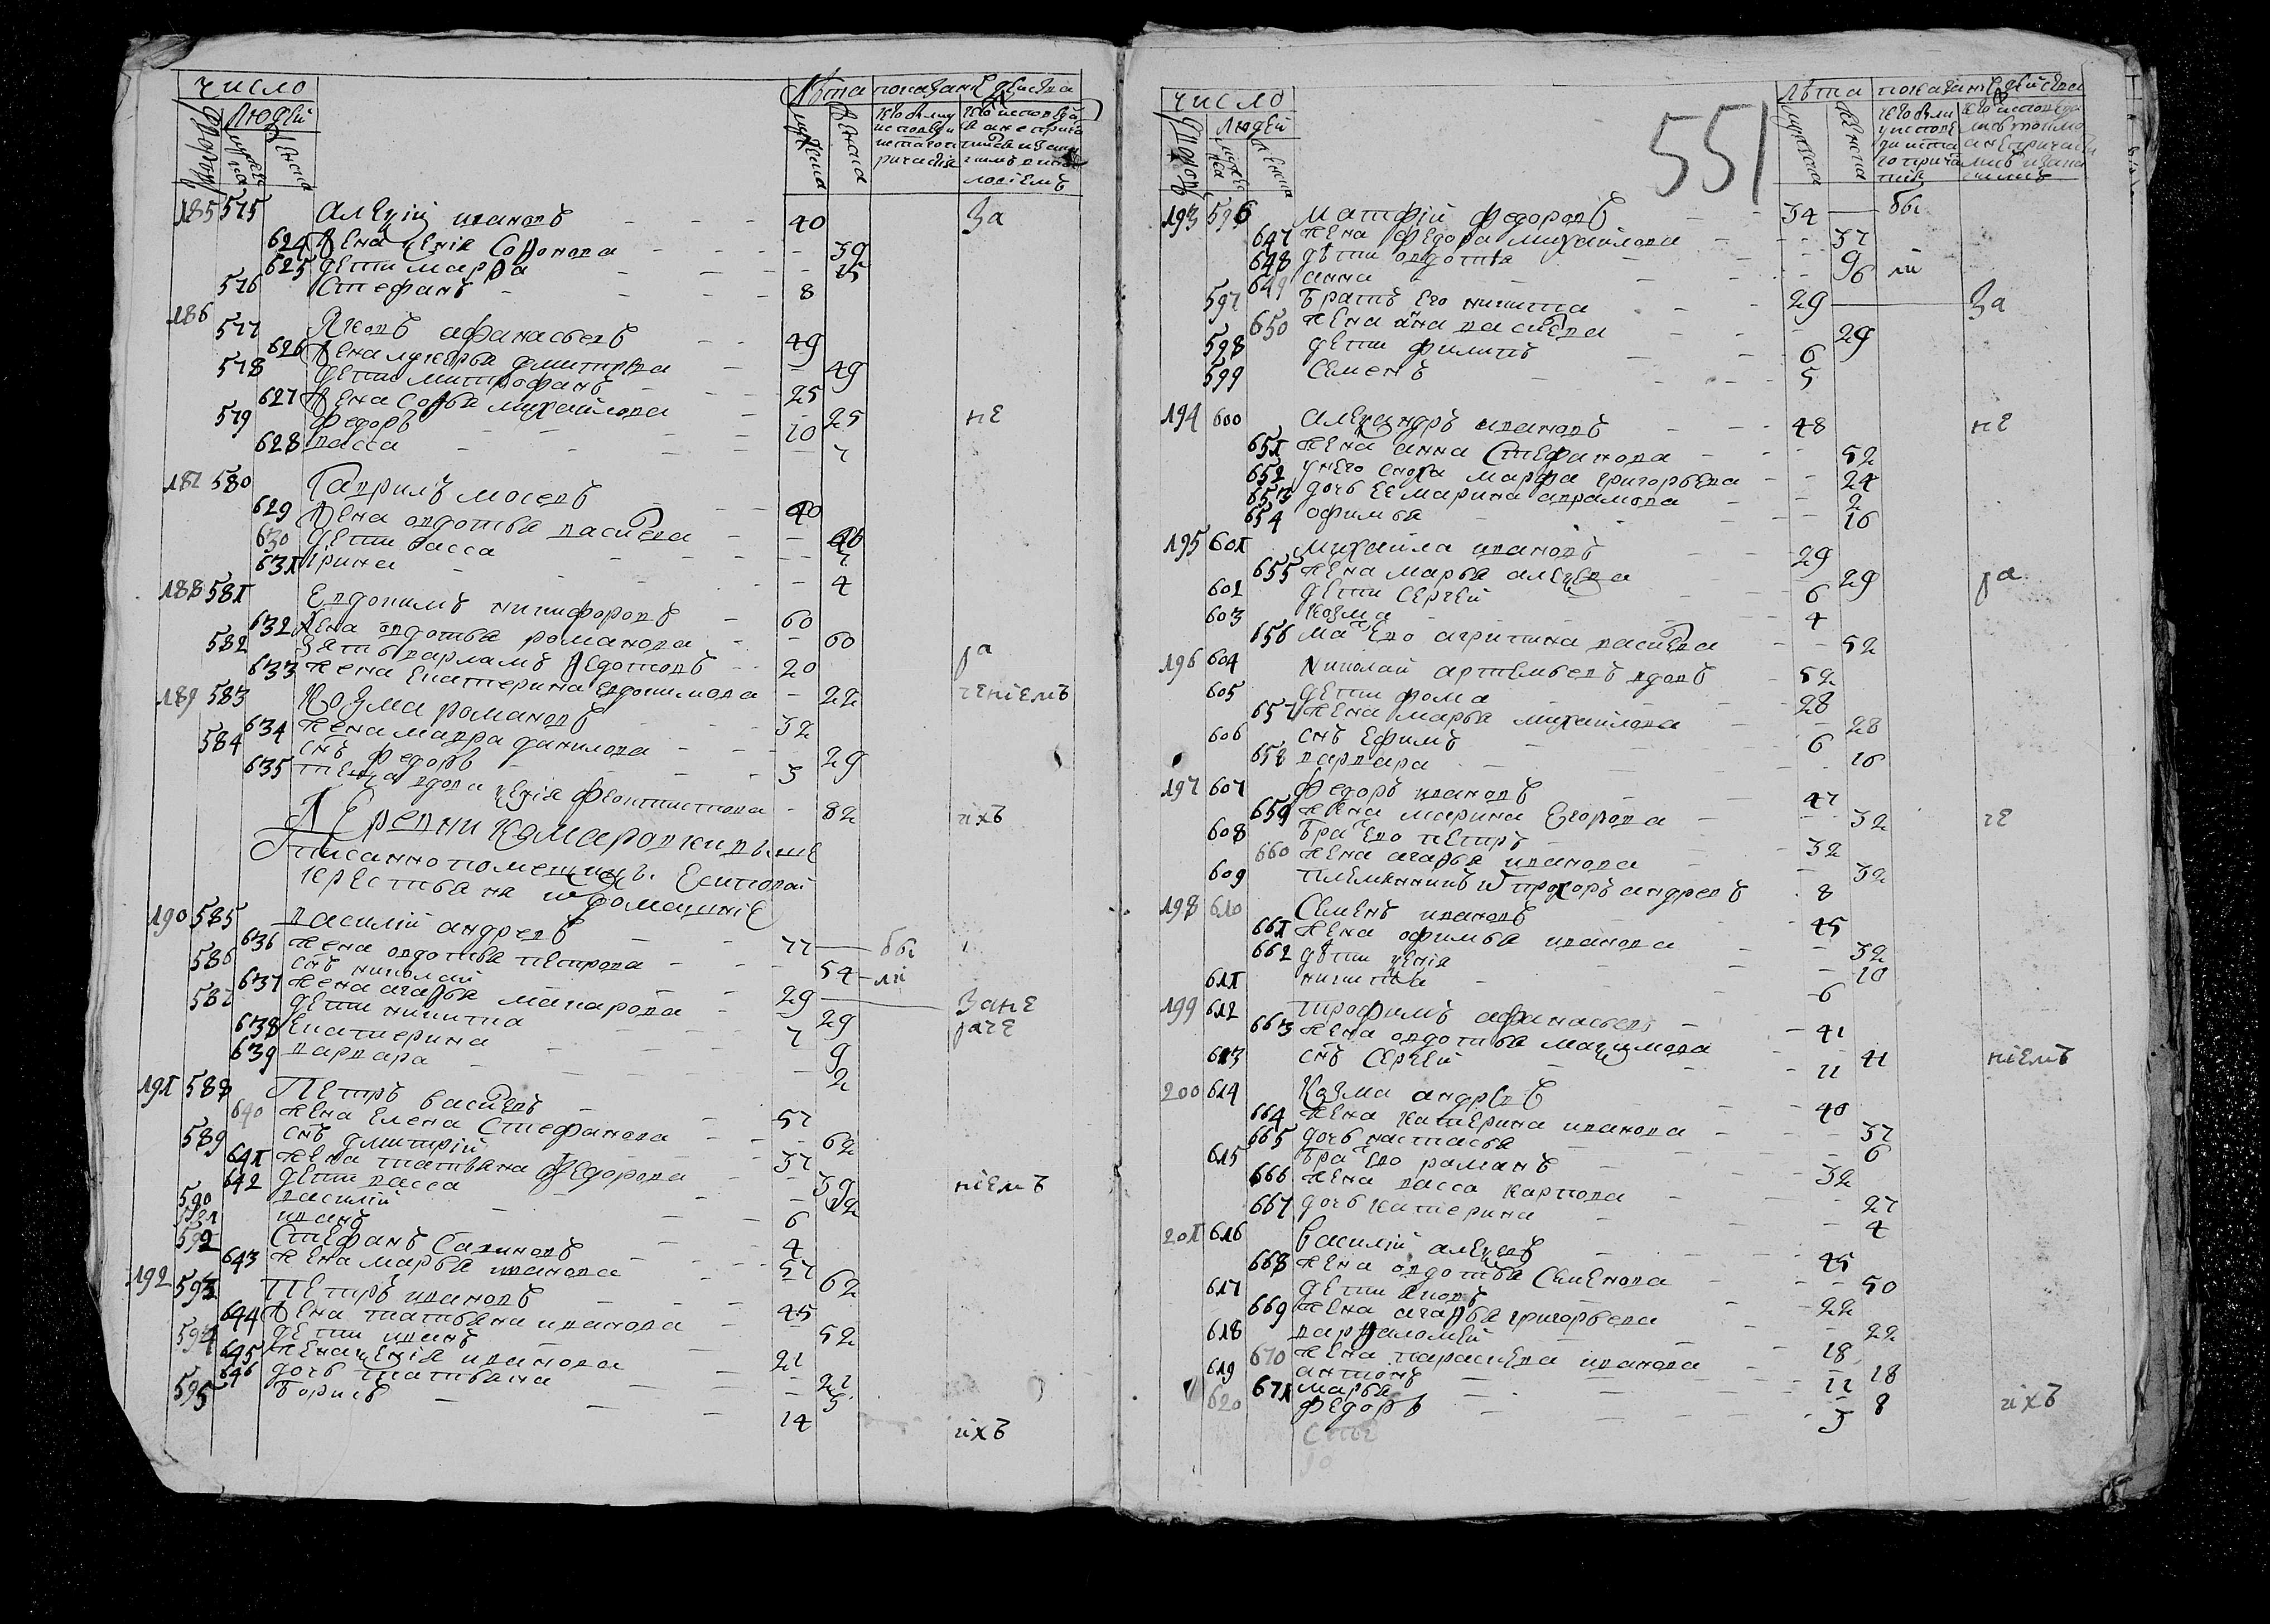 число
Людей
Дворовъ
мужеска
женска
Лѣта
показание действа
мужеска
женска
185 575 Алеѯій ивановъ - - - 40 За
624 Жена ѯенія Софонова - - - - 39
625 дети марфа - - - - 15
576 Стефанъ - - - - 8
186 577 Яковъ афанасьевъ - - 49
626 Жена лукерья дмитрева - - 49
578 дети митрофанъ - - - 25
627 Жена софья михайлова - - 25 не
579 федоръ - - - 10
628 васса - - - - 7
187 580 Гаврилъ мосеевъ - - 40
629 Жена овдотья васиева - - 40
630 дети васса - - - - 7
631 Ірина - - - - 4
188 581 Евдокимъ никифоровъ - 60
632 Жена овдотья романова - - 60
582 Зять варламъ федотовъ - - 20 ра
633 жена екатерина евдокимова - 22 ченіемъ
189 583 Козма романовъ - - 32
634 жена мавра данилова - - - 29
584 снъ федоръ - - - - 3
635 теща вдова ѯенія феоктистова - 82 ихъ
Деревни Комаровки выше
писанно помещицы Есиповой
крестьяне и домашніе
190 585 василій андревъ - - 77 — бы
636 жена овдотья петрова - - 54 — ли
586 снъ николай - - 29 — Зане
637 жена агафья макарова - - 29 раче
587 дети никита - - - 7
638 Екатерина - - - - 9
639 варвара - - - - 2
191 588 Петръ васиевъ - - 57
640 жена Елена Стефанова - - - 62
589 снъ дмитрій - - - 37
641 жена татьяна федорова - - 39 ніемъ
642 дети васса - - - 12
590 василій - - - 6
591 иванъ - - - 4
592 Стефанъ Савиновъ - - - 57
643 жена марья иванова - - 62
192 593 Петръ ивановъ - - - 45
644 Жена татьяна иванова - - 52
594 дети иванъ - - - 27
645 жена ѯенія иванова - - 27
646 дочь татьяна - - - 5
595 Борисъ - - - 14 ихъ
551
число
Людей
Дворовъ
женска
лѣта
показаніе действа
мужеска
женска
193 596 матфій федоровъ - - 34 — бы
647 жена федора михайлова - - - 37
648 дѣти овдотья - - - 9
649 анна - - - - 6 ли
597 Братъ Его никита - - 29 — За
650 жена анна васиева - - 29
598 дети филипъ - - - 6
599 Семенъ - - - - 5
194 600 Алеѯандръ ивановъ - - - 48 не
651 жена анна Стефанова - - - 52
652 у него сноха марфа григорьева - - 24
653 дочь ее марина аврамова - - 2
654 офимья - - - - 16
195 601 Михайла ивановъ - - 29
655 жена марья алеѯева - - 29 ра
602 дети Сергей - - - 6
603 козма - - - - 4
656 мать Ево агрипина васиева - - 52
196 604 Николай артемьевъ вдовъ - 52
605 дети фома - - - 28
657 жена марья михайлова - - 28
606 снъ ефимъ - - - 6
658 варвара - - - - 16
197 607 федоръ ивановъ - 47
659 жена марина Егорова - - - 32 че
608 Братъ Ево петръ - - 32
660 жена агафья иванова - - 32
609 племянникъ прохоръ андревъ - 8
198 610 Семенъ ивановъ - - 45
661 жена офимья иванова - - 32
662 дѣти ѯенія - - - 10
611 никита - - - - 6
199 612 трофимъ афанасьевъ - - 41
663 жена овдотья маѯимова - - 41 ніемъ
613 снъ Сергей - - - 11
200 614 Козма андревъ - - - 40
664 жена катерина иванова - - - 37
665 дочь настасья - - - 6
615 Братъ Ево романъ - - - 32
666 жена васса карпова - - - 27
667 дочь катерина - - - 4
201 616 Василій алеѯевъ - - - 45
668 жена овдотья Семенова - - - 50
617 дети яковъ - - - 22
669 жена агафья григорьева - - 22
618 варфаломей - - - 18
670 жена параскева иванова - - 18
619 антонъ - - - - 11
671 марья - - - - 8
620 федоръ - - - - 3 ихъ